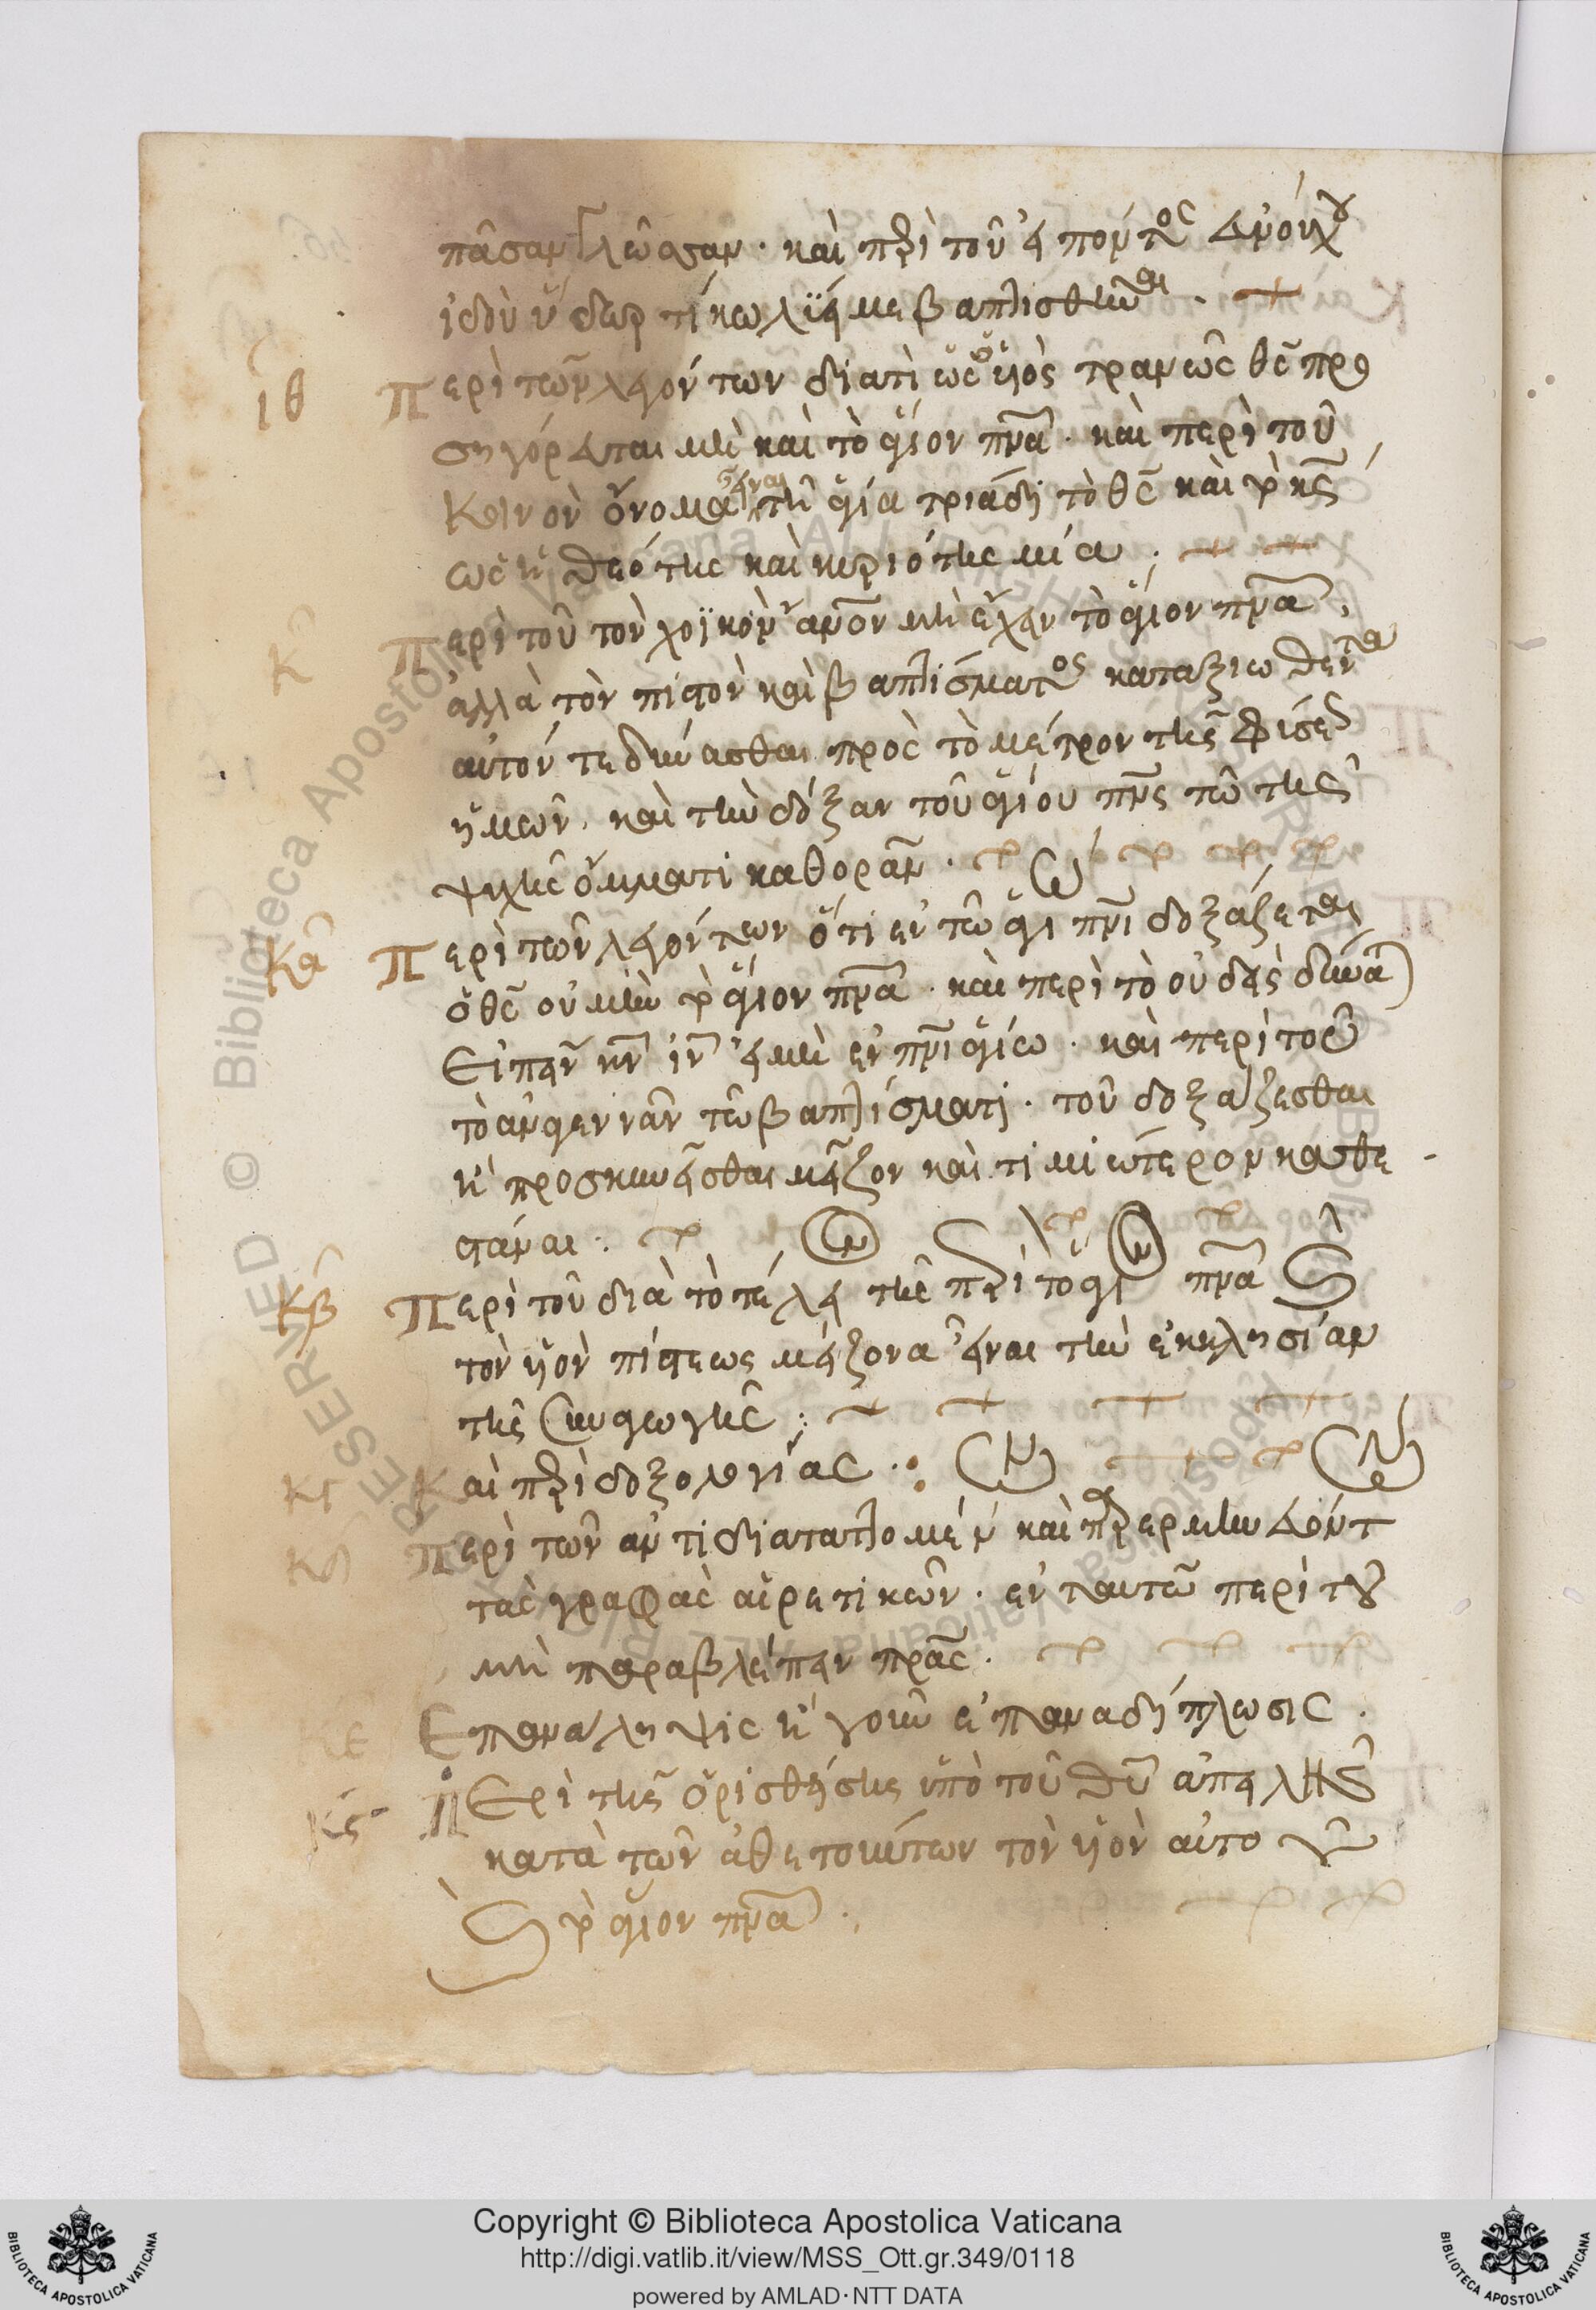 πᾶσαν γλῶσσαν · καὶ περὶ τοῦ εἰπόντος εὐνούχου
ἰδοὺ ὕδωρ τί κωλύει με βαπτισθῆναι · +
ιθ Περὶ τῶν λεγόντων διατί ὡς ὁ υἱὸς τρανῶς θς προ
σηγόρευται μὴ καὶ τὸ ἅγιον πνα · καὶ περὶ τοῦ
κοινὸν ὄνομα εἶναι τῇ ἁγία τριάδι τὸ θς καὶ τὸ κς
ὡς ἡ θεότης καὶ κυριότης μία · + +
κ Περὶ τοῦ τὸν χοϊκὸν ἄνον μὴ ἔχειν τὸ ἅγιον πνα,
ἀλλὰ τὸν πιστὸν καὶ βαπτίσματος καταξιωθέντα
αὐτόν τε δύνασθαι πρὸς τὸ μέτρον τῆς φύσεως
ἡμῶν, καὶ τὴν δόξαν τοῦ ἁγίου πνς τῶ τῆς
ψυχῆς ὄμματι καθορᾶν ·
κα Περὶ τῶν λεγόντων ὅτι ἐν τῶ ἁγίῳ πνι δοξάζεται
ὁ θς οὐ μὴν τὸ ἅγιον πνα · καὶ περὶ τὸ οὐδεὶς δύναται
εἰπεῖν κν ιν εἰ μὴ ἐν πνι ἁγίω · καὶ περὶ τοῦ
τὸ ἀναγεννᾶν τῶ βαπτίσματι · τοῦ δοξάζεσθαι
ἢ προσκυνεῖσθαι μεῖζον καὶ τιμιώτερον καθε-
στάναι ·
κβ Περὶ τοῦ διὰ τὸ τέλει τῆς περὶ τὸ ἅγιον πνα καὶ
τὸν υἱὸν πίστεως μείζονα εἶναι τὴν ἐκκλησίαν
τῆς συναγωγῆς ·
κγ Καὶ περὶ δοξολογίας ·
κδ Περὶ τῶν ἀντιδιαταττομένων καὶ παρερμηνευόντων
τὰς γραφὰς αἱρετικῶν · ἐν ταυτῶ περὶ τοῦ
μὴ παραβλέπειν πρας ·
κε Ἐπανάληψις ἤγουν ἐπαναδίπλωσις ·
κς Περὶ τῆς ὁρισθείσης ὑπὸ τοῦ θυ ἀπειλῆς
κατὰ τῶν ἀθετούντων τὸν υἱὸν αὐτοῦ
καὶ τὸ ἅγιον πνα ·
Copyright © Biblioteca Apostolica Vaticana
http://digi.vatlib.it/view/MSS_Ott.gr.349/0118
powered by AMLAD·NTT DATA
BIBLIOTECA APOSTOLICA VATICANA
BIBLIOTECA APOSTOLICA VATICANA